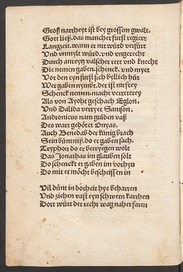 Groß narrheyt ist bey grossem gwalt
Gott ließ, das mancher fürst regiert
Langzeit. wann er nit würd verfürt
Und unmylt würd. und ungerecht
Durch anreyß valscher rett und knecht
Die nemen gaben. schenck. und myet
Vor den eyn fürst sich billich hüt
Wer gaben nymbt. der ist nit frey
Schenck nemen. macht verretery
Als von Ayoht geschach Eglon.
Und Dalida verryet Sampson.
Andronicus nam gulden vaß
Des wart gedötet Onyas.
Auch Benedab der künig brach
Sein büntniß. do er gaben sach.
Tryphon do er betryegen wolt
Das Jonathas im glauben solt
Do schenckt er gaben im vorhyn
Do mit er möcht beschissen in
Vil dünt in doheit hye beharren
Und ziehen vast eyn schweren karchen
Dort würt der recht wag naher faren